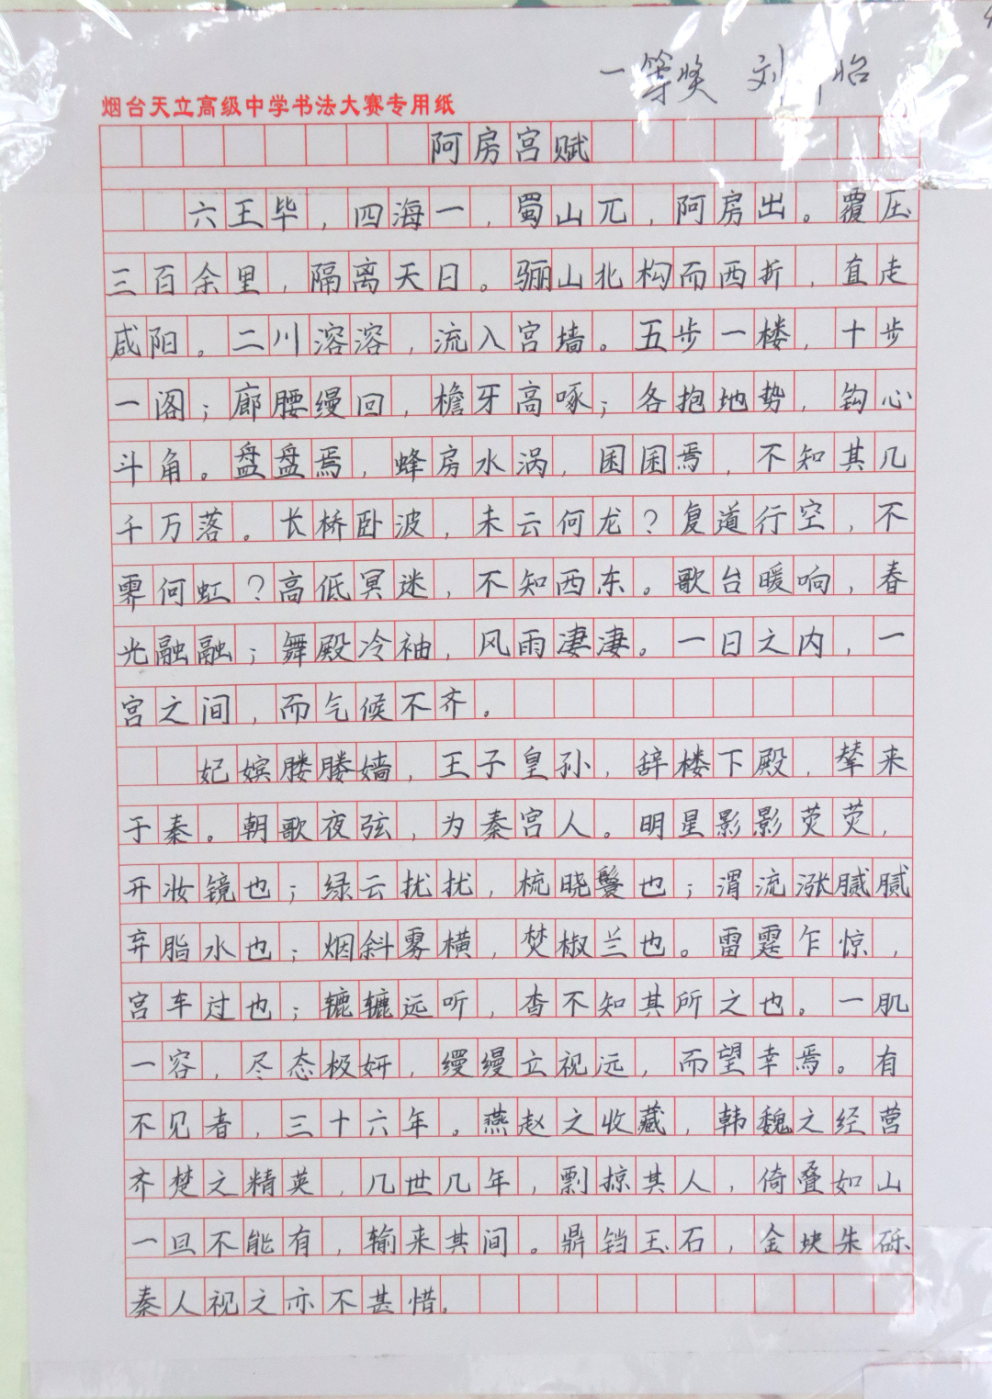 一等奖 刘 怡
烟台天立高级中学书法大赛专用纸
阿房宫赋
六王毕，四海一，蜀山兀，阿房出。覆压
三百余里，隔离天日。骊山北构而西折，直走
咸阳。二川溶溶，流入宫墙。五步一楼，十步
一阁；廊腰缦回，檐牙高啄；各抱地势，钩心
斗角。盘盘焉，蜂房水涡，囷囷焉，不知其几
千万落。长桥卧波，未云何龙？复道行空，不
霁何虹？高低冥迷，不知西东。歌台暖响，春
光融融；舞殿冷袖，风雨凄凄。一日之内，一
宫之间，而气候不齐。
妃嫔媵嫱，王子皇孙，辞楼下殿，辇来
于秦。朝歌夜弦，为秦宫人。明星影影荧荧，
开妆镜也；绿云扰扰，梳晓鬟也；渭流涨腻腻
弃脂水也；烟斜雾横，焚椒兰也。雷霆乍惊，
宫车过也；辘辘远听，杳不知其所之也。一肌
一容，尽态极妍，缦缦立视远，而望幸焉。有
不见者，三十六年。燕赵之收藏，韩魏之经营
齐楚之精英，几世几年，剽掠其人，倚叠如山
一旦不能有，输来其间。鼎铛玉石，金块朱砾
秦人视之亦不甚惜。